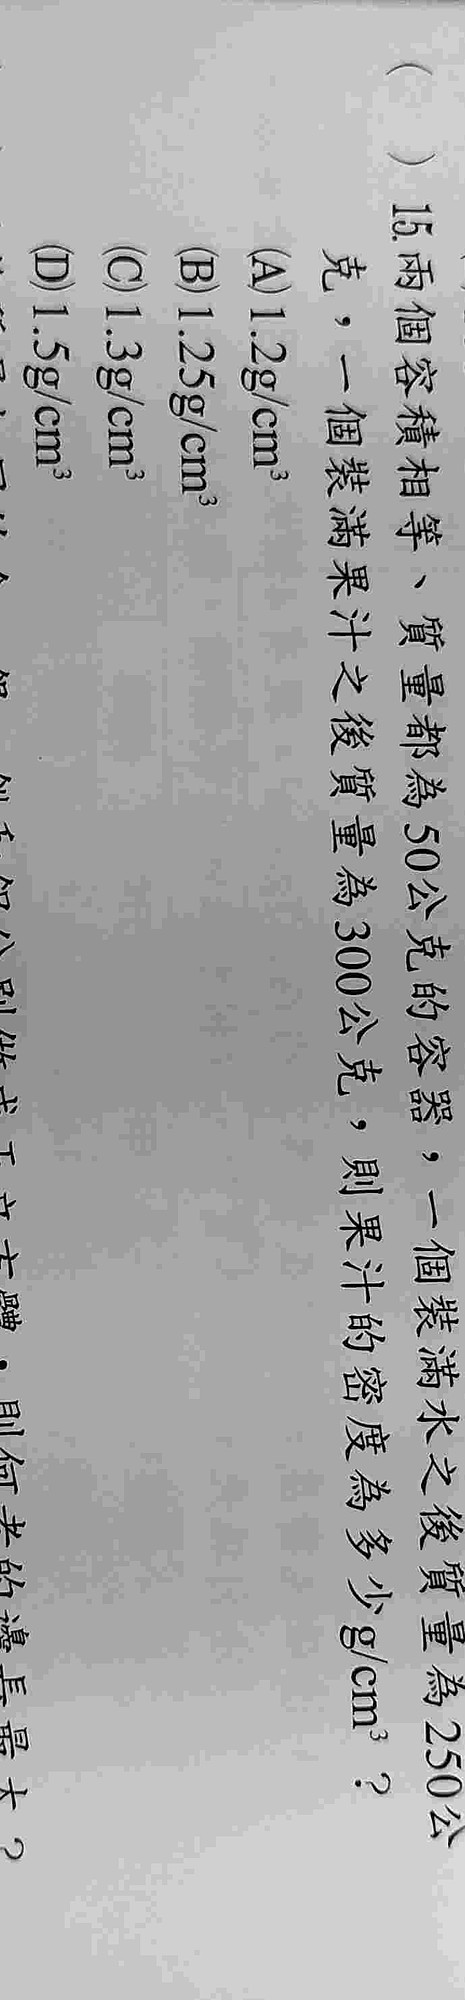 (　) 15.兩個容積相等、質量都為50公克的容器，一個裝滿水之後質量為250公
克，一個裝滿果汁之後質量為300公克，則果汁的密度為多少g/cm³？
(A) 1.2g/cm³
(B) 1.25g/cm³
(C) 1.3g/cm³
(D) 1.5g/cm³
分別做成正立方體，則何者的邊長最大？